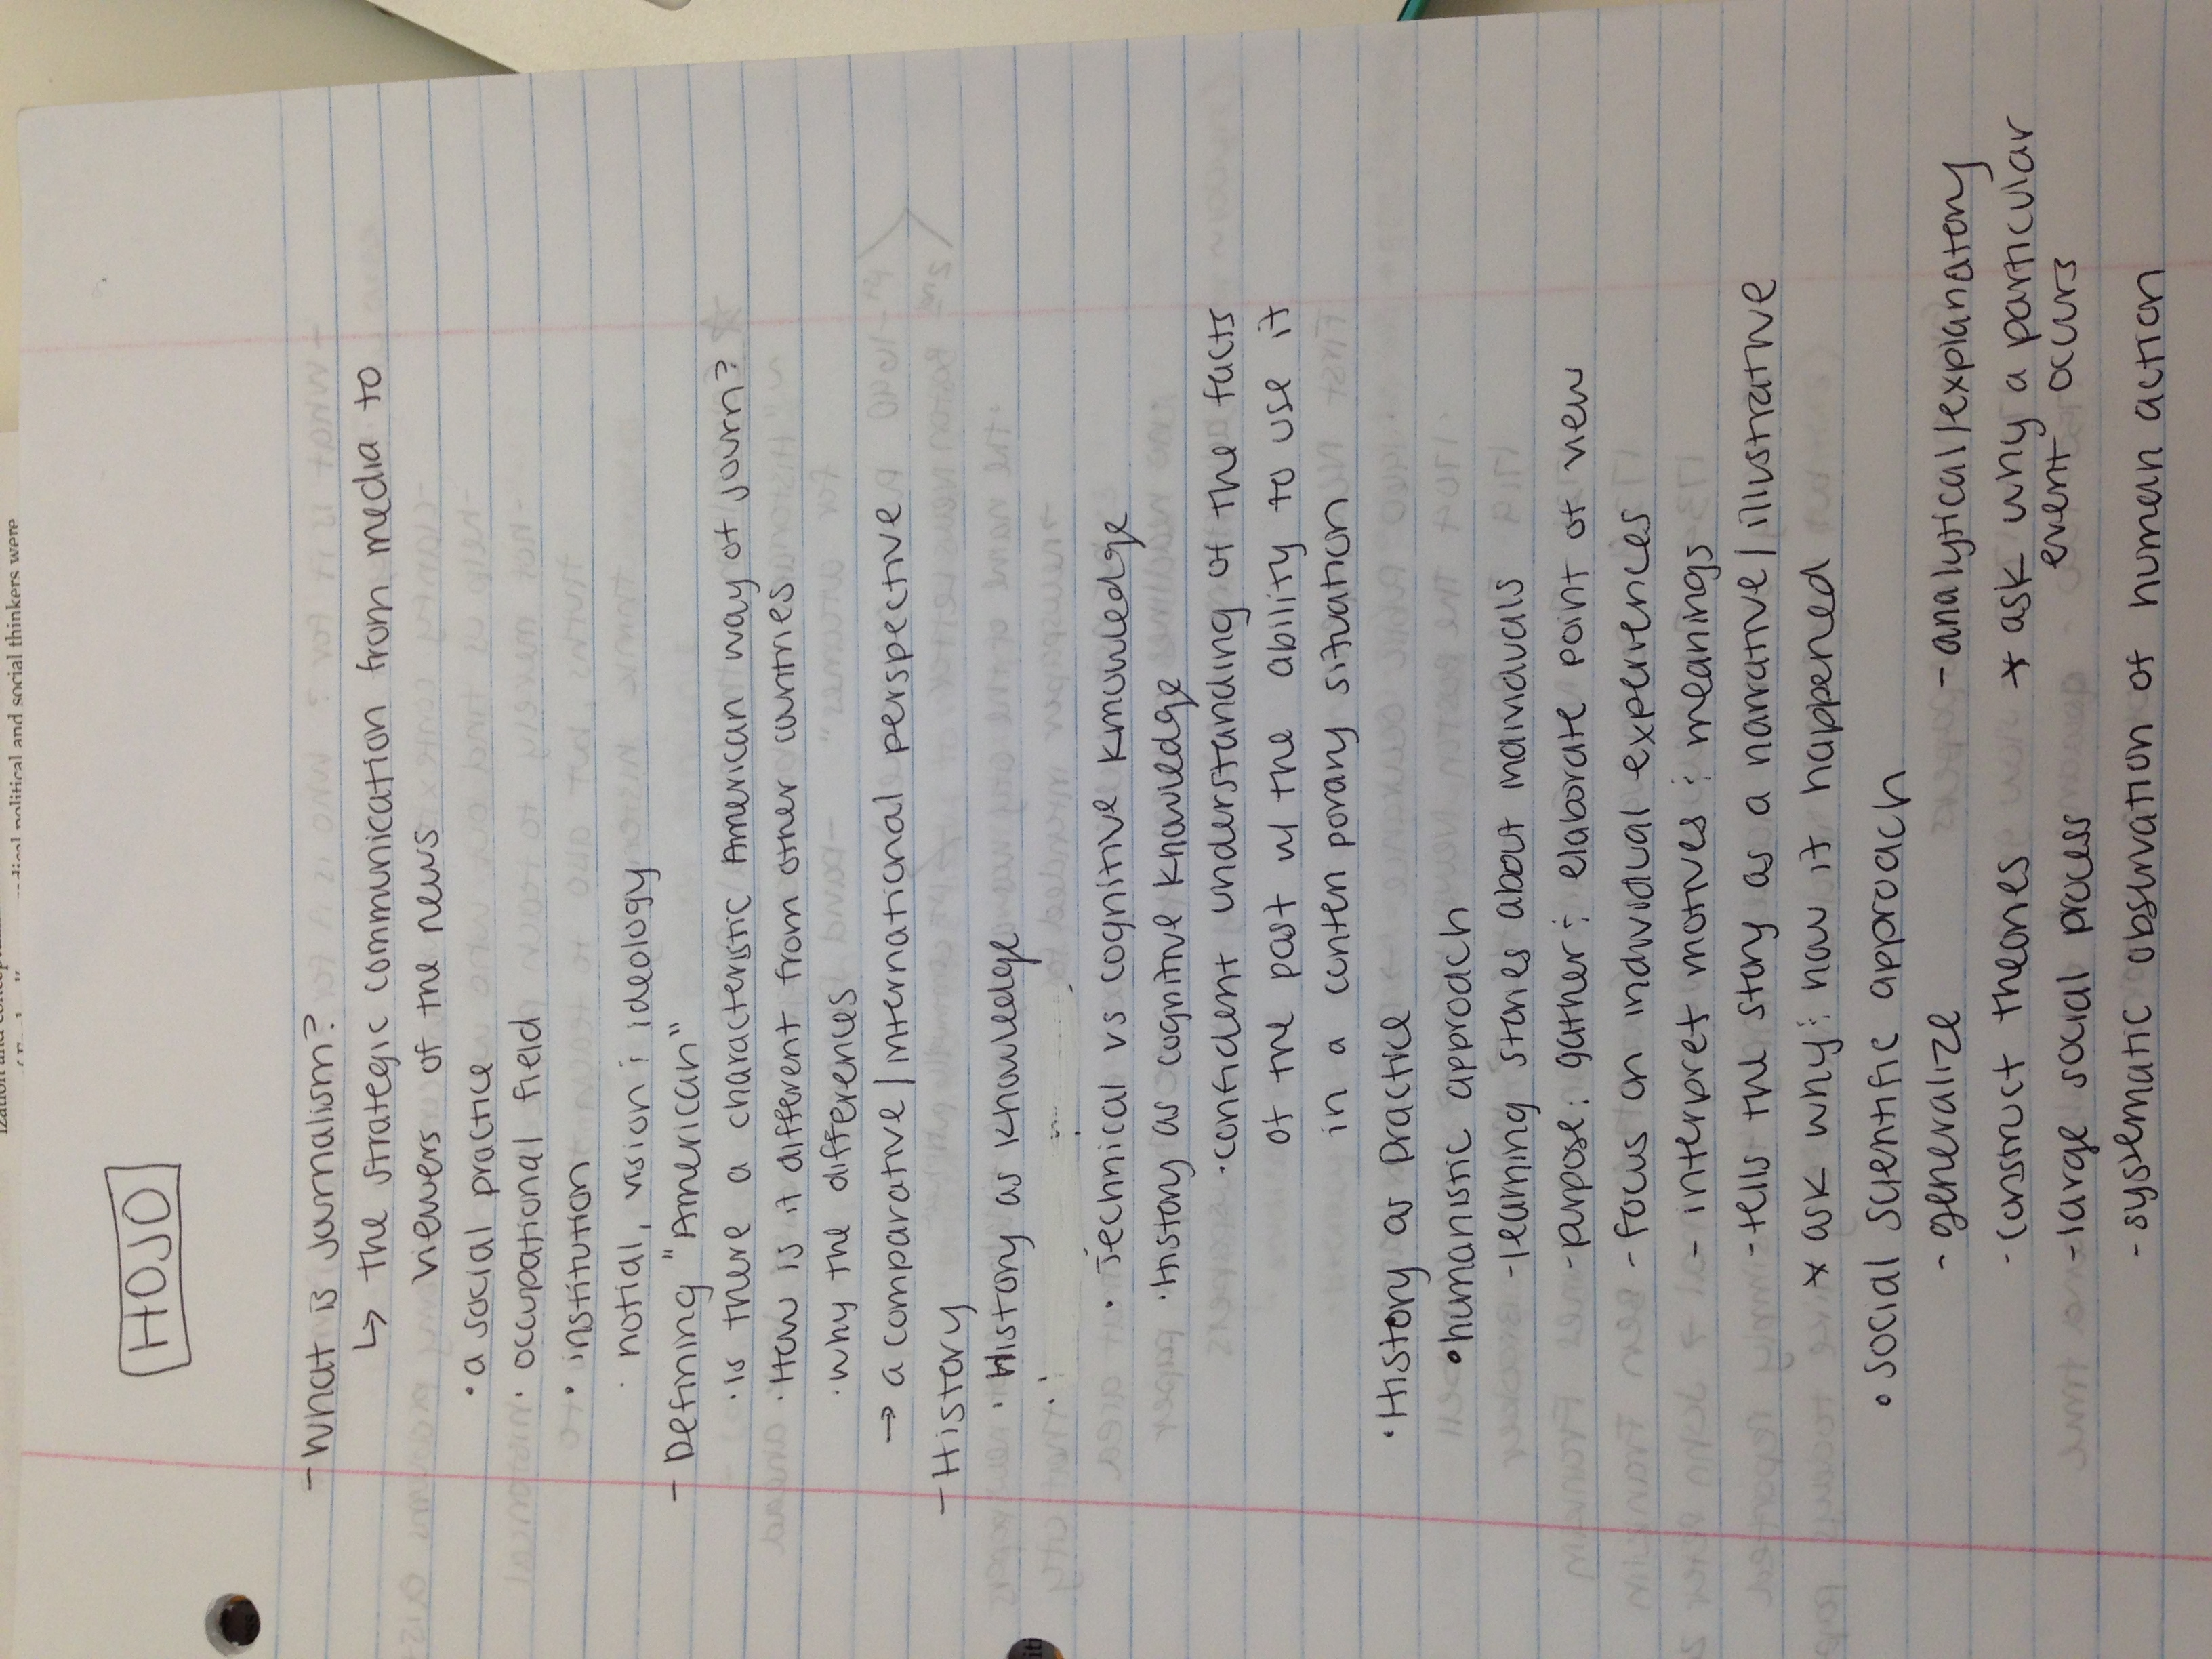 HOJO
- What is Journalism?
↳ the strategic communication from media to
viewers of the news
• a social practice
• occupational field
• institution
• notial, vision & ideology
- Defining "American"
• is there a characteristic American way of journ?
• How is it different from other countries
• why the differences
→ a comparative/international perspective
- History
• History as knowledge
• Technical vs cognitive knowledge
• History as cognitive knowledge
• confident understanding of the facts
of the past w/ the ability to use it
in a contemporary situation
• History as practice
• humanistic approach
- learning stories about individuals
- purpose: gather & elaborate point of view
- focus on individual experiences
- interpret motives & meanings
- tells the story as a narrative/illustrative
* ask why & how it happened
• social scientific approach
- generalize - analytical/explanatory
- construct theories * ask why a particular
event occurs
- large social process
- systematic observation of human action
political and social thinkers were